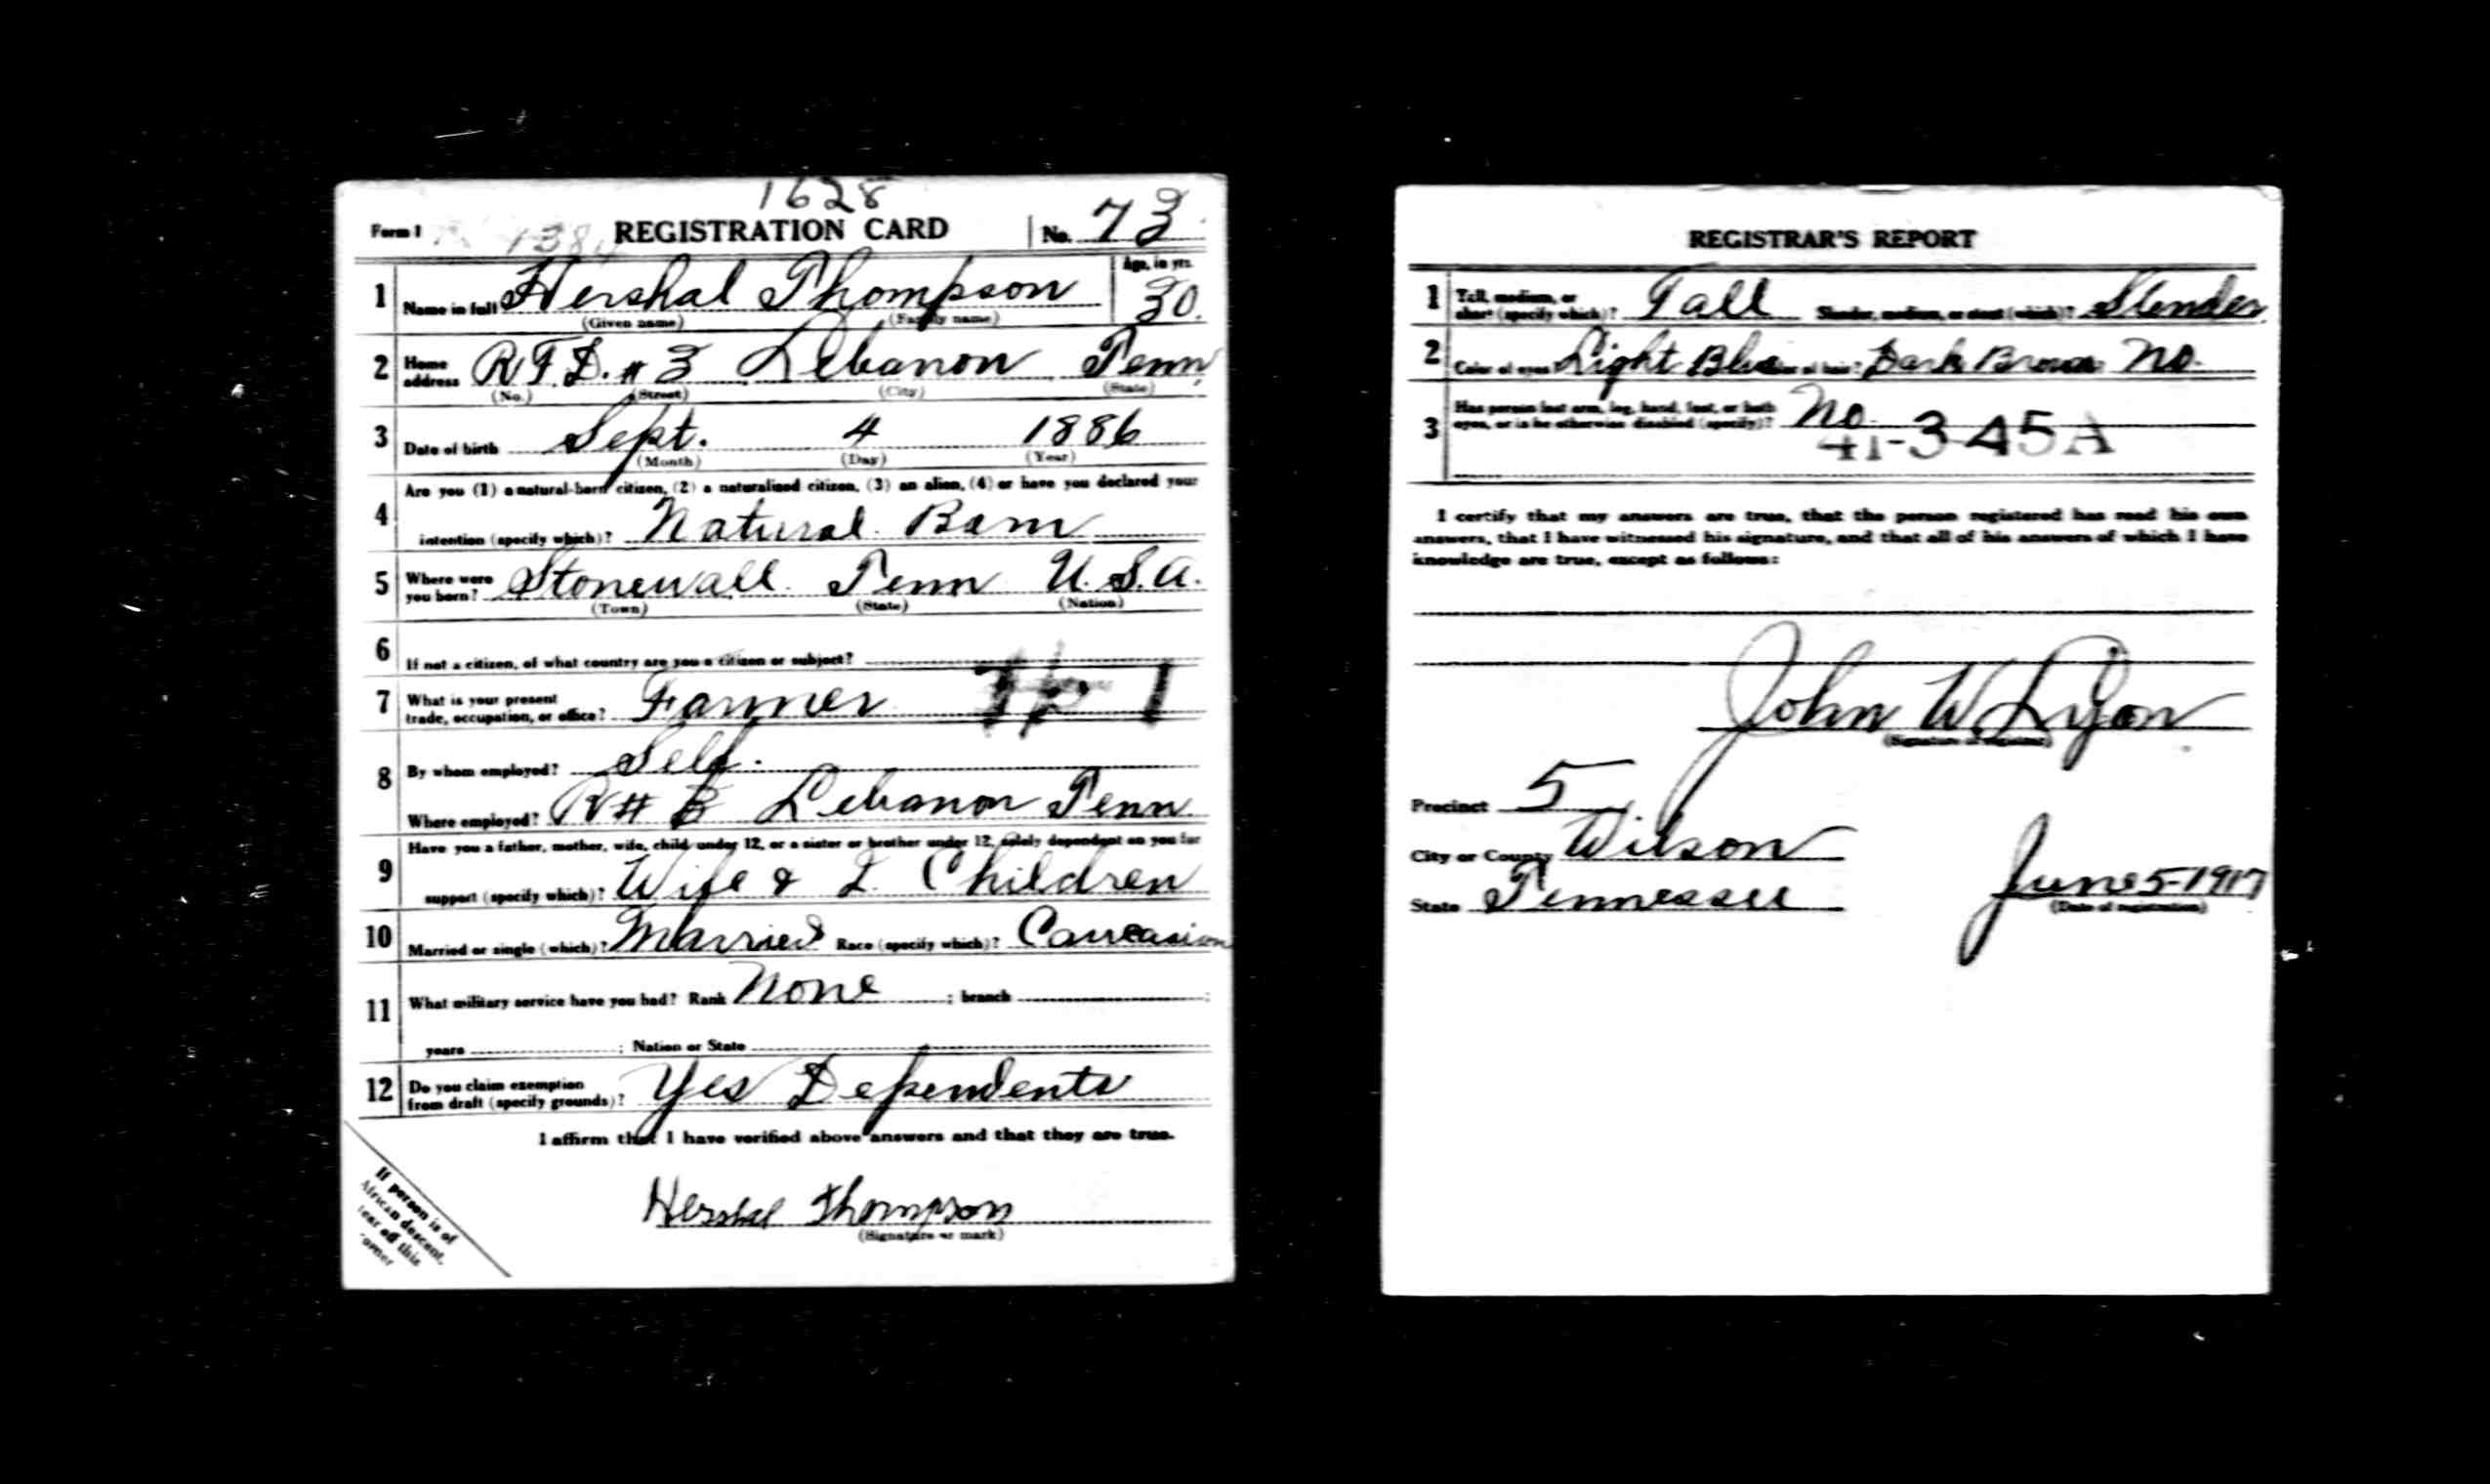 1628
Form 1 REGISTRATION CARD No. 73
1 Name in full Hershal Thompson Age, in yrs. 30
(Given name) (Family name)
2 Home address R.F.D. # 3 Lebanon Tenn
(No.) (Street) (City) (State)
3 Date of birth Sept. 4 1886
(Month) (Day) (Year)
4 Are you (1) a natural-born citizen, (2) a naturalized citizen, (3) an alien, (4) or have you declared your
intention (specify which)? Natural Born
5 Where were you born? Stonewall Tenn U.S.A.
(Town) (State) (Nation)
6 If not a citizen, of what country are you a citizen or subject?
7 What is your present trade, occupation, or office? Farmer
8 By whom employed? Self.
Where employed? R# 3 Lebanon Tenn.
9 Have you a father, mother, wife, child under 12, or a sister or brother under 12, solely dependent on you for
support (specify which)? Wife & 2. Children
10 Married or single (which)? Married Race (specify which)? Caucasion
11 What military service have you had? Rank None ; branch ;
years ; Nation or State
12 Do you claim exemption from draft (specify grounds)? Yes Dependents
I affirm that I have verified above answers and that they are true.
Hershal Thompson
(Signature or mark)
If person is of
African descent,
tear off this
corner
REGISTRAR'S REPORT
1 Tall, medium, or short (specify which)? Tall Slender, medium, or stout (which)? Slender
2 Color of eyes Light Blue of hair? Dark Brown No.
3 Has person lost arm, leg, hand, foot, or both
eyes, or is he otherwise disabled (specify)? No
41-3-45A
I certify that my answers are true, that the person registered has read his own
answers, that I have witnessed his signature, and that all of his answers of which I have
knowledge are true, except as follows:
John W Lyon
(Signature of registrar)
Precinct 5
City or County Wilson
State Tennessee June 5-1917
(Date of registration)